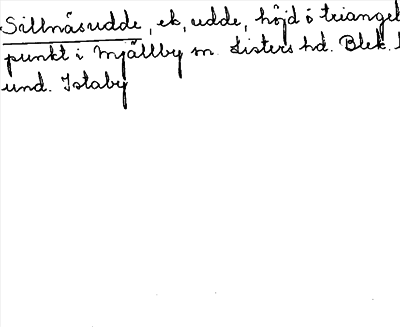 Sillnäsudde, ek, udde, höjd o triangel
punkt i Mjällby sn Listers hd. Blek. l
und. Istaby